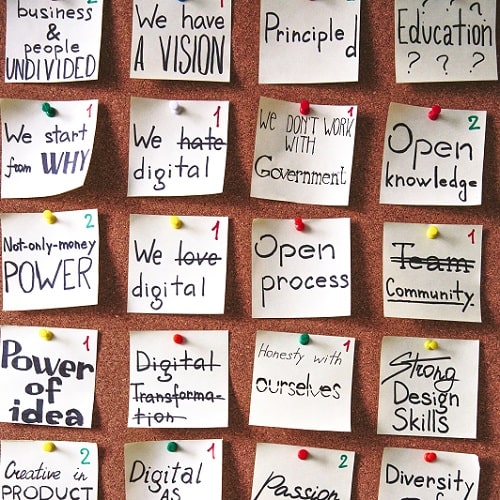 business 2
&
people
UNDIVIDED
We have
A VISION
Principled
Education
? ? ?
We start 1
from WHY
We hate 1
digital
We DON'T WORK 1
WITH
Government
Open 2
knowledge
Not-only-money 2
POWER
We love 1
digital
Open 1
process
Team 1
Community.
Power 1
of
idea
Digital
Transforma-
tion
Honesty with 1
ourselves
Strong
Design
Skills
Creative in 2
PRODUCT
Digital 1
AS
Passion 2
Diversity